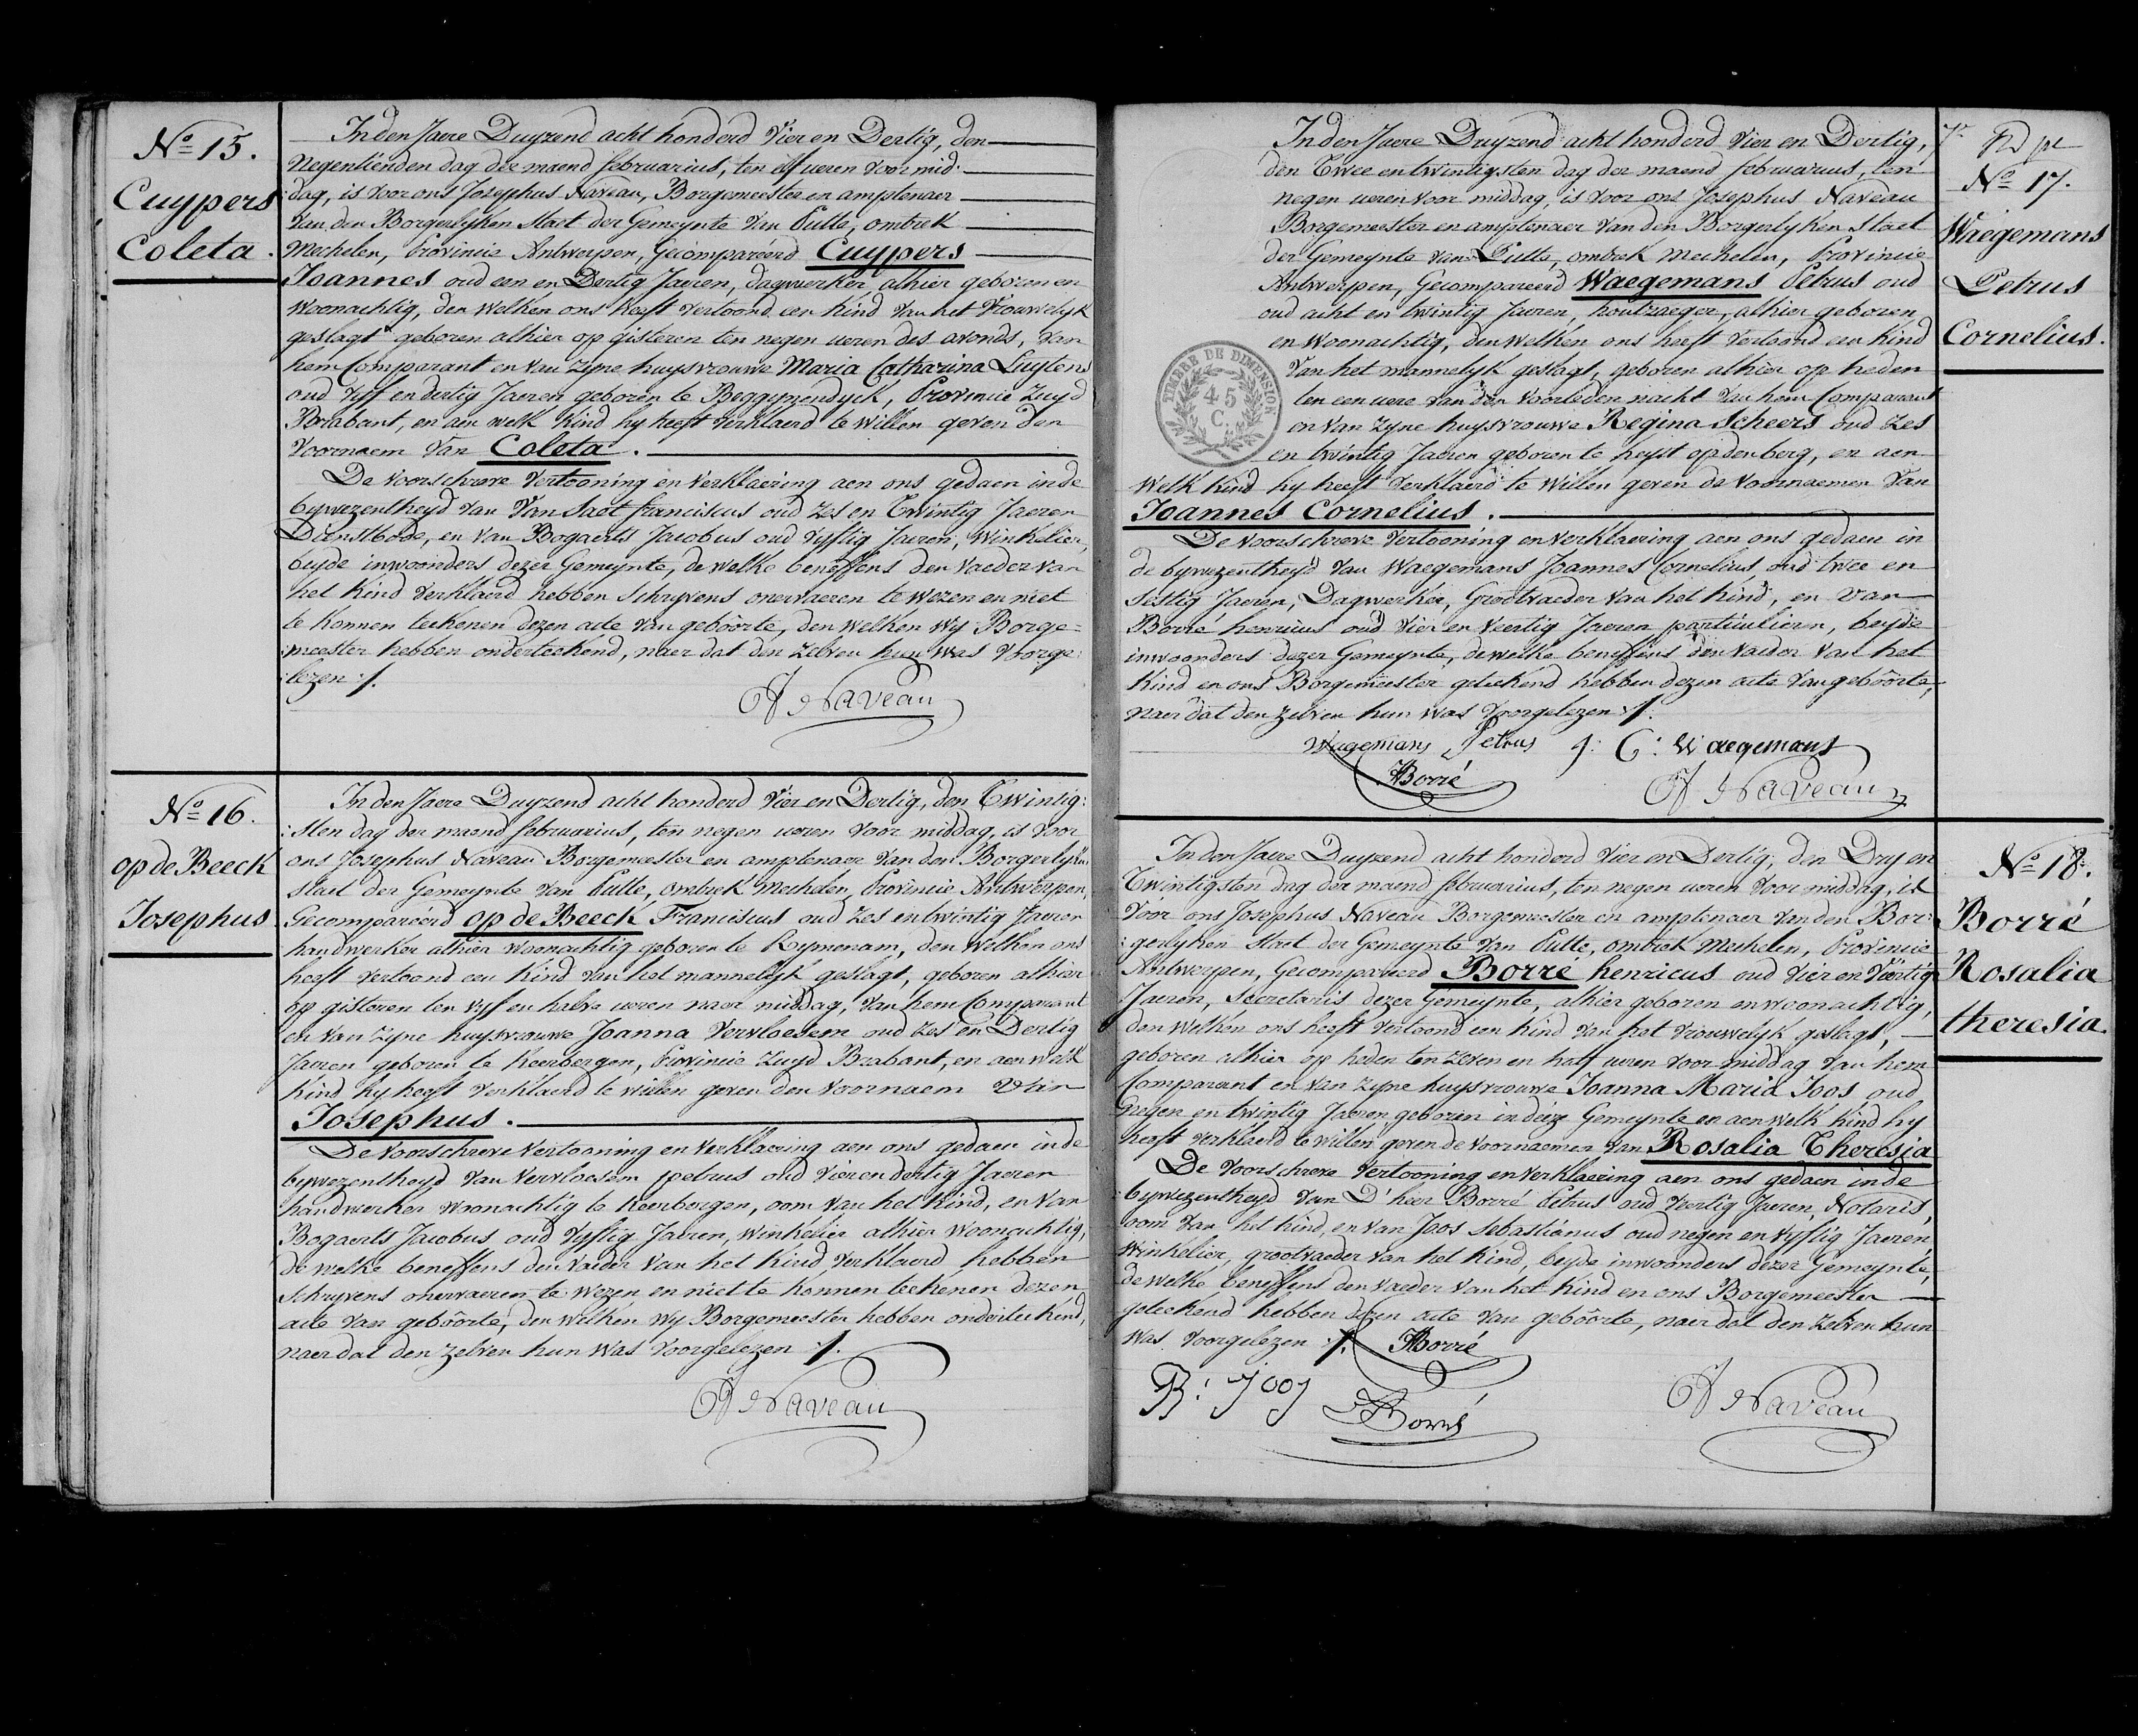 No 15.
Cuypers
Coleta.
In den Jaere Duyzend acht honderd Vier en Dertig, den
Negentienden dag der maend februarius, ten elf ueren voor mid:
:dag, is voor ons Josephus Naveau, Borgemeester en amptenaer
van den Borgerlyken Staet der Gemeynte van Putte, omtrek
Mechelen, Provincie Antwerpen, Gecompareérd Cuypers
Joannes oud een en Dertig Jaeren, dagwerker, alhier geboren en
Woonachtig, den Welken ons heeft vertoond een Kind van het Vrouwelyk
geslagt geboren alhier op gisteren ten negen ueren des avonds, van
hem Comparant en van zyne huysvrouwe Maria Catharina Luytens
oud vyff en dertig Jaeren geboren te Beggynendyck, Provincie Zuyd
Brabant, en aen welk Kind hy heeft verklaerd te willen geven den
Voornaem van Coleta.
De voorschreve Vertooning en Verklaering aen ons gedaen in de
bywezentheyd van Van Sadt franciscus oud zes en Twintig Jaeren
Dienstbode, en van Bogaerts Jacobus oud Vyftig Jaeren, Winkelier,
beyde inwoonders dezer Gemeynte, de welke beneffens den Vaeder van
het Kind Verklaerd hebben Schryvens onervaeren te wezen en niet
te konnen teekenen dezen acte van geboórte, den welken wy Borge=
:meester hebben onderteekend, naer dat den zelven hun was Vorge:
:lezen ./.
J Naveau
No 16.
op de Beeck
Josephus
In den Jaere Duyzend acht honderd Vier en Dertig, den Twintig:
:sten dag der maend februarius, ten negen ueren voor middag, is voor
ons Josephus Naveau Borgemeester en amptenaer van den Borgerlyken
staet der Gemeynte van Putte, omtrek Mechelen, Provincie Antwerpen,
Gecompareérd op de Beeck Franciscus oud zes en twintig Jaeren
handwerker alhier woonachtig geboren te Rymenam, den Welken ons
heeft vertoond een Kind van het mannelyk geslagt, geboren alhier
op gisteren ten vyf en halve ueren naer middag, van hem Comparant
en van zyne huysvrouwe Joanna Vervloesem oud zes en Dertig
Jaeren geboren te Keerbergen, Provincie Zuyd Brabant, en aen welk
Kind hy heeft verklaerd te willen geven den Voornaem van
Josephus.
De Voorschreve Vertooning en Verklaering aen ons gedaen in de
bywezentheyd van Vervloesem petrus oud Vier en dertig Jaeren
handwerker woonachtig te Keerbergen, oom van het Kind, en van
Bogaerts Jacobus oud Vyftig Jaeren, Winkelier alhier Woonachtig,
de welke beneffens den Vaeder van het Kind Verklaerd hebben
Schryvens onervaeren te wezen en niet te konnen teekenen dezen
acte van geboórte, den welken wy Borgemeester hebben onderteekend,
naer dat den zelven hun was Voorgelezen ./.
J Naveau
No 17.
Waegemans
Petrus
Cornelius.
In den Jaere Duyzend acht honderd Vier en Dertig,
den Twee en twintigsten dag der maend februarius, ten
negen ueren voor middag, is voor ons Josephus Naveau
Borgemeester en amptenaer van den Borgerlyken Staet
der Gemeynte van Putte, omtrek Mechelen, Provincie
Antwerpen, Gecompareerd Waegemans Petrus oud
oud acht en twintig Jaeren, houtzaeger, alhier geboren
en Woonachtig, den welken ons heeft vertoond een Kind
van het mannelyk geslagt, geboren alhier op heden
ten een uere van den voorleden nacht van hem Comparant
en van zyne huysvrouwe Regina Scheers oud zes
en twintig Jaeren geboren te heyst op den berg, en aen
Welk Kind hy heeft Verklaerd te Willen geven de Voornaemen van
Joannes Cornelius.
De voorschreve Vertooning en Verklaering aen ons gedaen in
de bywezentheyd van Waegemans Joannes Cornelius oud twee en
Sestig Jaeren, Dagwerker, Grootvaeder van het Kind, en van
Borré henricus oud Vier en Veertig Jaeren particulieren, beyde
inwoonders dezer Gemeynte, dewelke beneffens den Vaeder van het
Kind en ons Borgemeester geteekend hebben dezen acte van geboórte,
naer dat den zelven hun was Voorgelezen ./.
Wagemans Petrus J: C: Waegemans
HBorré
J Naveau
TIMBRE DE DIMENSION
45
C.
No 18.
Borré
Rosalia
theresia.
In den Jaere Duyzend acht honderd Vier en Dertig, den Dry en
Twintigsten dag der maend februarius, ten negen ueren voor middag, is
Vóór ons Josephus Naveau Borgemeester en amptenaer van den Bor:
:gerlyken Staet der Gemeynte van Putte, omtrek Mechelen, Provincie
Antwerpen, Gecompareerd Borré henricus oud Vier en Veertig
Jaeren, Secretaris dezer Gemeynte, alhier geboren en woonachtig,
den Welken ons heeft Vertoond een Kind van het Vrouwelyk geslagt,
geboren alhier op heden ten Zeven en half ueren voor middag van hem
Comparant en van zyne huysvrouwe Joanna Maria Joos oud
Negen en twintig Jaeren, geboren in deze Gemeynte en aen welk Kind hy
heeft verklaerd te willen geven de voornaemen van Rosalia Theresia
De Voorschreve Vertooning en Verklaering aen ons gedaen in de
bywezentheyd van D'heer Borré Petrus oud Veertig Jaeren, Notaris,
oom van het Kind, en van Joos Sebastianus oud negen en vyftig Jaeren
Winkelier, grootvaeder van het Kind, beyde inwoonders dezer Gemeynte,
de welke beneffens den vaeder van het Kind en ons Borgemeester
geteekend hebben dezen acte van geboórte, naer dat den zelven hun
was Voorgelezen ./. HBorré
B: Joos
Borré
J Naveau